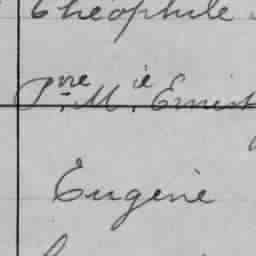 Théophile
Pʳʳᵉ. Mⁱᵉ. Ernest
Eugène